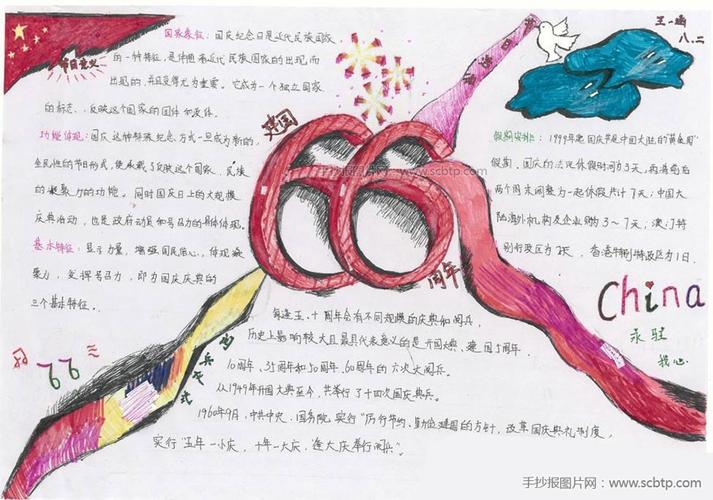 节日意义
国家象征：国庆纪念日是近代民族国家
的一种特征，是伴随着近代民族国家的出现而
出现的，并且变得尤为重要。它成为一个独立国家
的标志，反映这个国家的国体和政体。
功能体现：国庆这种特殊纪念方式一旦成为新的、
全民性的节日形式，便承载了反映这个国家、民族
的凝聚力的功能。同时国庆日上的大规模
庆典活动，也是政府动员和号召力的具体体现。
基本特征：显示力量，增强国民信心，体现凝
聚力，发挥号召力，即为国庆庆典的
三个基本特征。
建国
66
周年
www.scbtp.com
王一
八.二
假期安排：1999年起国庆节是中国大陆的"黄金周"
假期，国庆的法定休假时间为3天，再将前后
两个周末调整为一起休假共计7天；中国大
陆海外机构及企业则为3~7天；澳门特
别行政区为2天，香港特别行政区为1日。
China
永驻
我心
阅兵仪式
66
每逢五、十周年会有不同规模的庆典和阅兵，
历史上影响较大且最具代表意义的是开国大典、建国5周年、
10周年、35周年和50周年、60周年的六次大阅兵。
从1949年开国大典至今，共举行了十四次国庆典兵。
1960年9月，中共中央、国务院实行"厉行节约、勤俭建国的方针，改革国庆典礼制度，
实行"五年一小庆，十年一大庆，逢大庆举行阅兵"。
手抄报图片网：www.scbtp.com